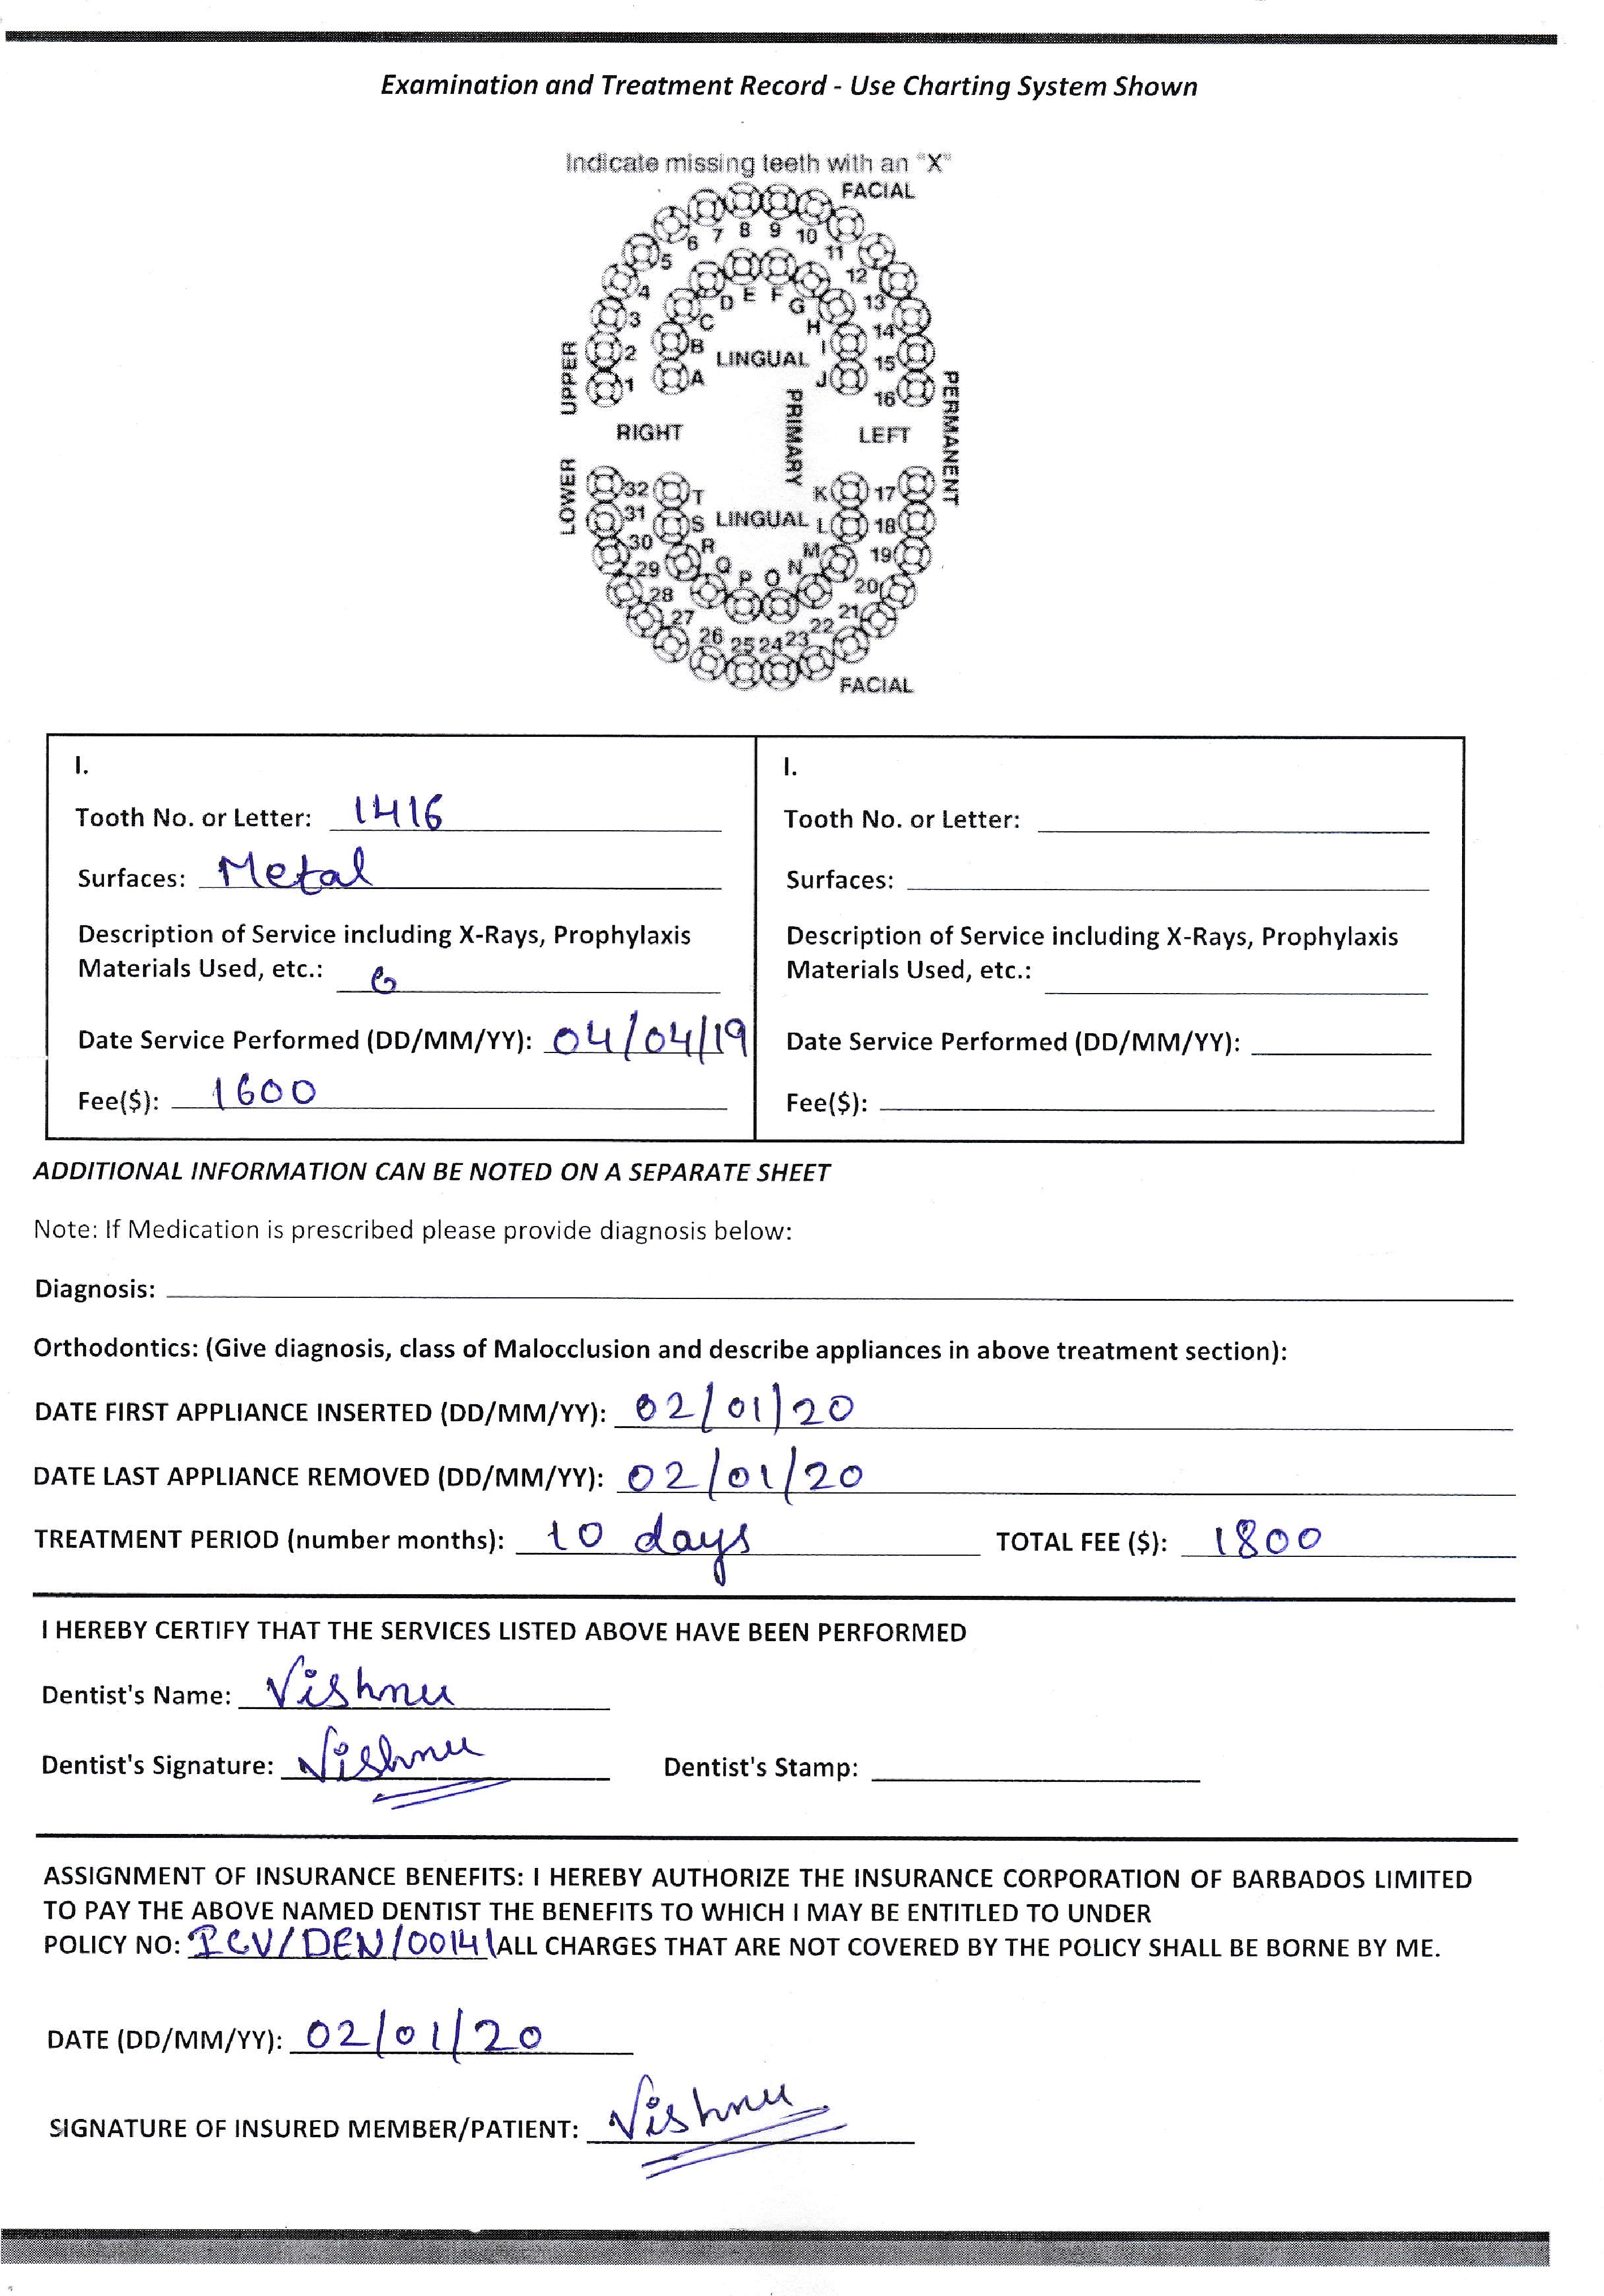 Examination and Treatment Record - Use Charting System Shown
Indicate missing teeth with an "X"
FACIAL
6 7 8 9 10 11
5 12
4 D E F G 13
3 C H 14
2 B LINGUAL I 15
1 A J 16
UPPER
PRIMARY
PERMANENT
RIGHT LEFT
LOWER
32 T K 17
31 S LINGUAL L 18
30 R M 19
29 Q P O N 20
28 21
27 22
26 25 24 23
FACIAL
I.
Tooth No. or Letter: 1416
Surfaces: Metal
Description of Service including X-Rays, Prophylaxis
Materials Used, etc.: 6
Date Service Performed (DD/MM/YY): 04/04/19
Fee($): 1600
I.
Tooth No. or Letter:
Surfaces:
Description of Service including X-Rays, Prophylaxis
Materials Used, etc.:
Date Service Performed (DD/MM/YY):
Fee($):
ADDITIONAL INFORMATION CAN BE NOTED ON A SEPARATE SHEET
Note: If Medication is prescribed please provide diagnosis below:
Diagnosis:
Orthodontics: (Give diagnosis, class of Malocclusion and describe appliances in above treatment section):
DATE FIRST APPLIANCE INSERTED (DD/MM/YY): 02/01/20
DATE LAST APPLIANCE REMOVED (DD/MM/YY): 02/01/20
TREATMENT PERIOD (number months): 10 days TOTAL FEE ($): 1800
I HEREBY CERTIFY THAT THE SERVICES LISTED ABOVE HAVE BEEN PERFORMED
Dentist's Name: Vishnu
Dentist's Signature: Vishnu Dentist's Stamp:
ASSIGNMENT OF INSURANCE BENEFITS: I HEREBY AUTHORIZE THE INSURANCE CORPORATION OF BARBADOS LIMITED
TO PAY THE ABOVE NAMED DENTIST THE BENEFITS TO WHICH I MAY BE ENTITLED TO UNDER
POLICY NO: ICV/DEN/00141 ALL CHARGES THAT ARE NOT COVERED BY THE POLICY SHALL BE BORNE BY ME.
DATE (DD/MM/YY): 02/01/20
SIGNATURE OF INSURED MEMBER/PATIENT: Vishnu